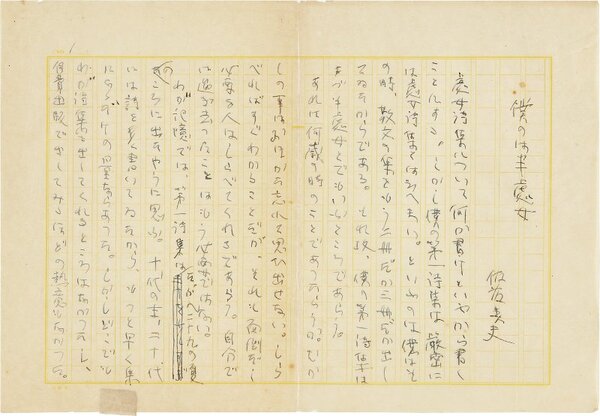 僕のは半處女
處女詩集について何か書けといふから書く
ことにする。しかし僕の第一詩集は嚴密に
は處女詩集とはいへない。といふのは僕はそ
の時、散文の集をもう二冊だか三冊だか出し
てゐたからである。それ故、僕の第一詩集は
まづ半處女とでもいふところであらう。
あれは何歳の時のことであつたらうか。むか
しの事はおほかた忘れて思ひ出せない。しら
べればすぐわかることだが、それも面倒だし
必要な人はしらべてくれるであらう。自分で
に過ぎ去つたことはもう必要ではない。
わが記憶では、第一詩集は たしか二十九の頃
ころに出たやうに思ふ。十代の末、二十代
には詩を多く書いてゐたから、もつと早く集
にするだけの量もあつた。しかしどこでも
わが詩集を出してくれるところはなかつたし、
自費出版で出してみるほどの熱意もなかつた。